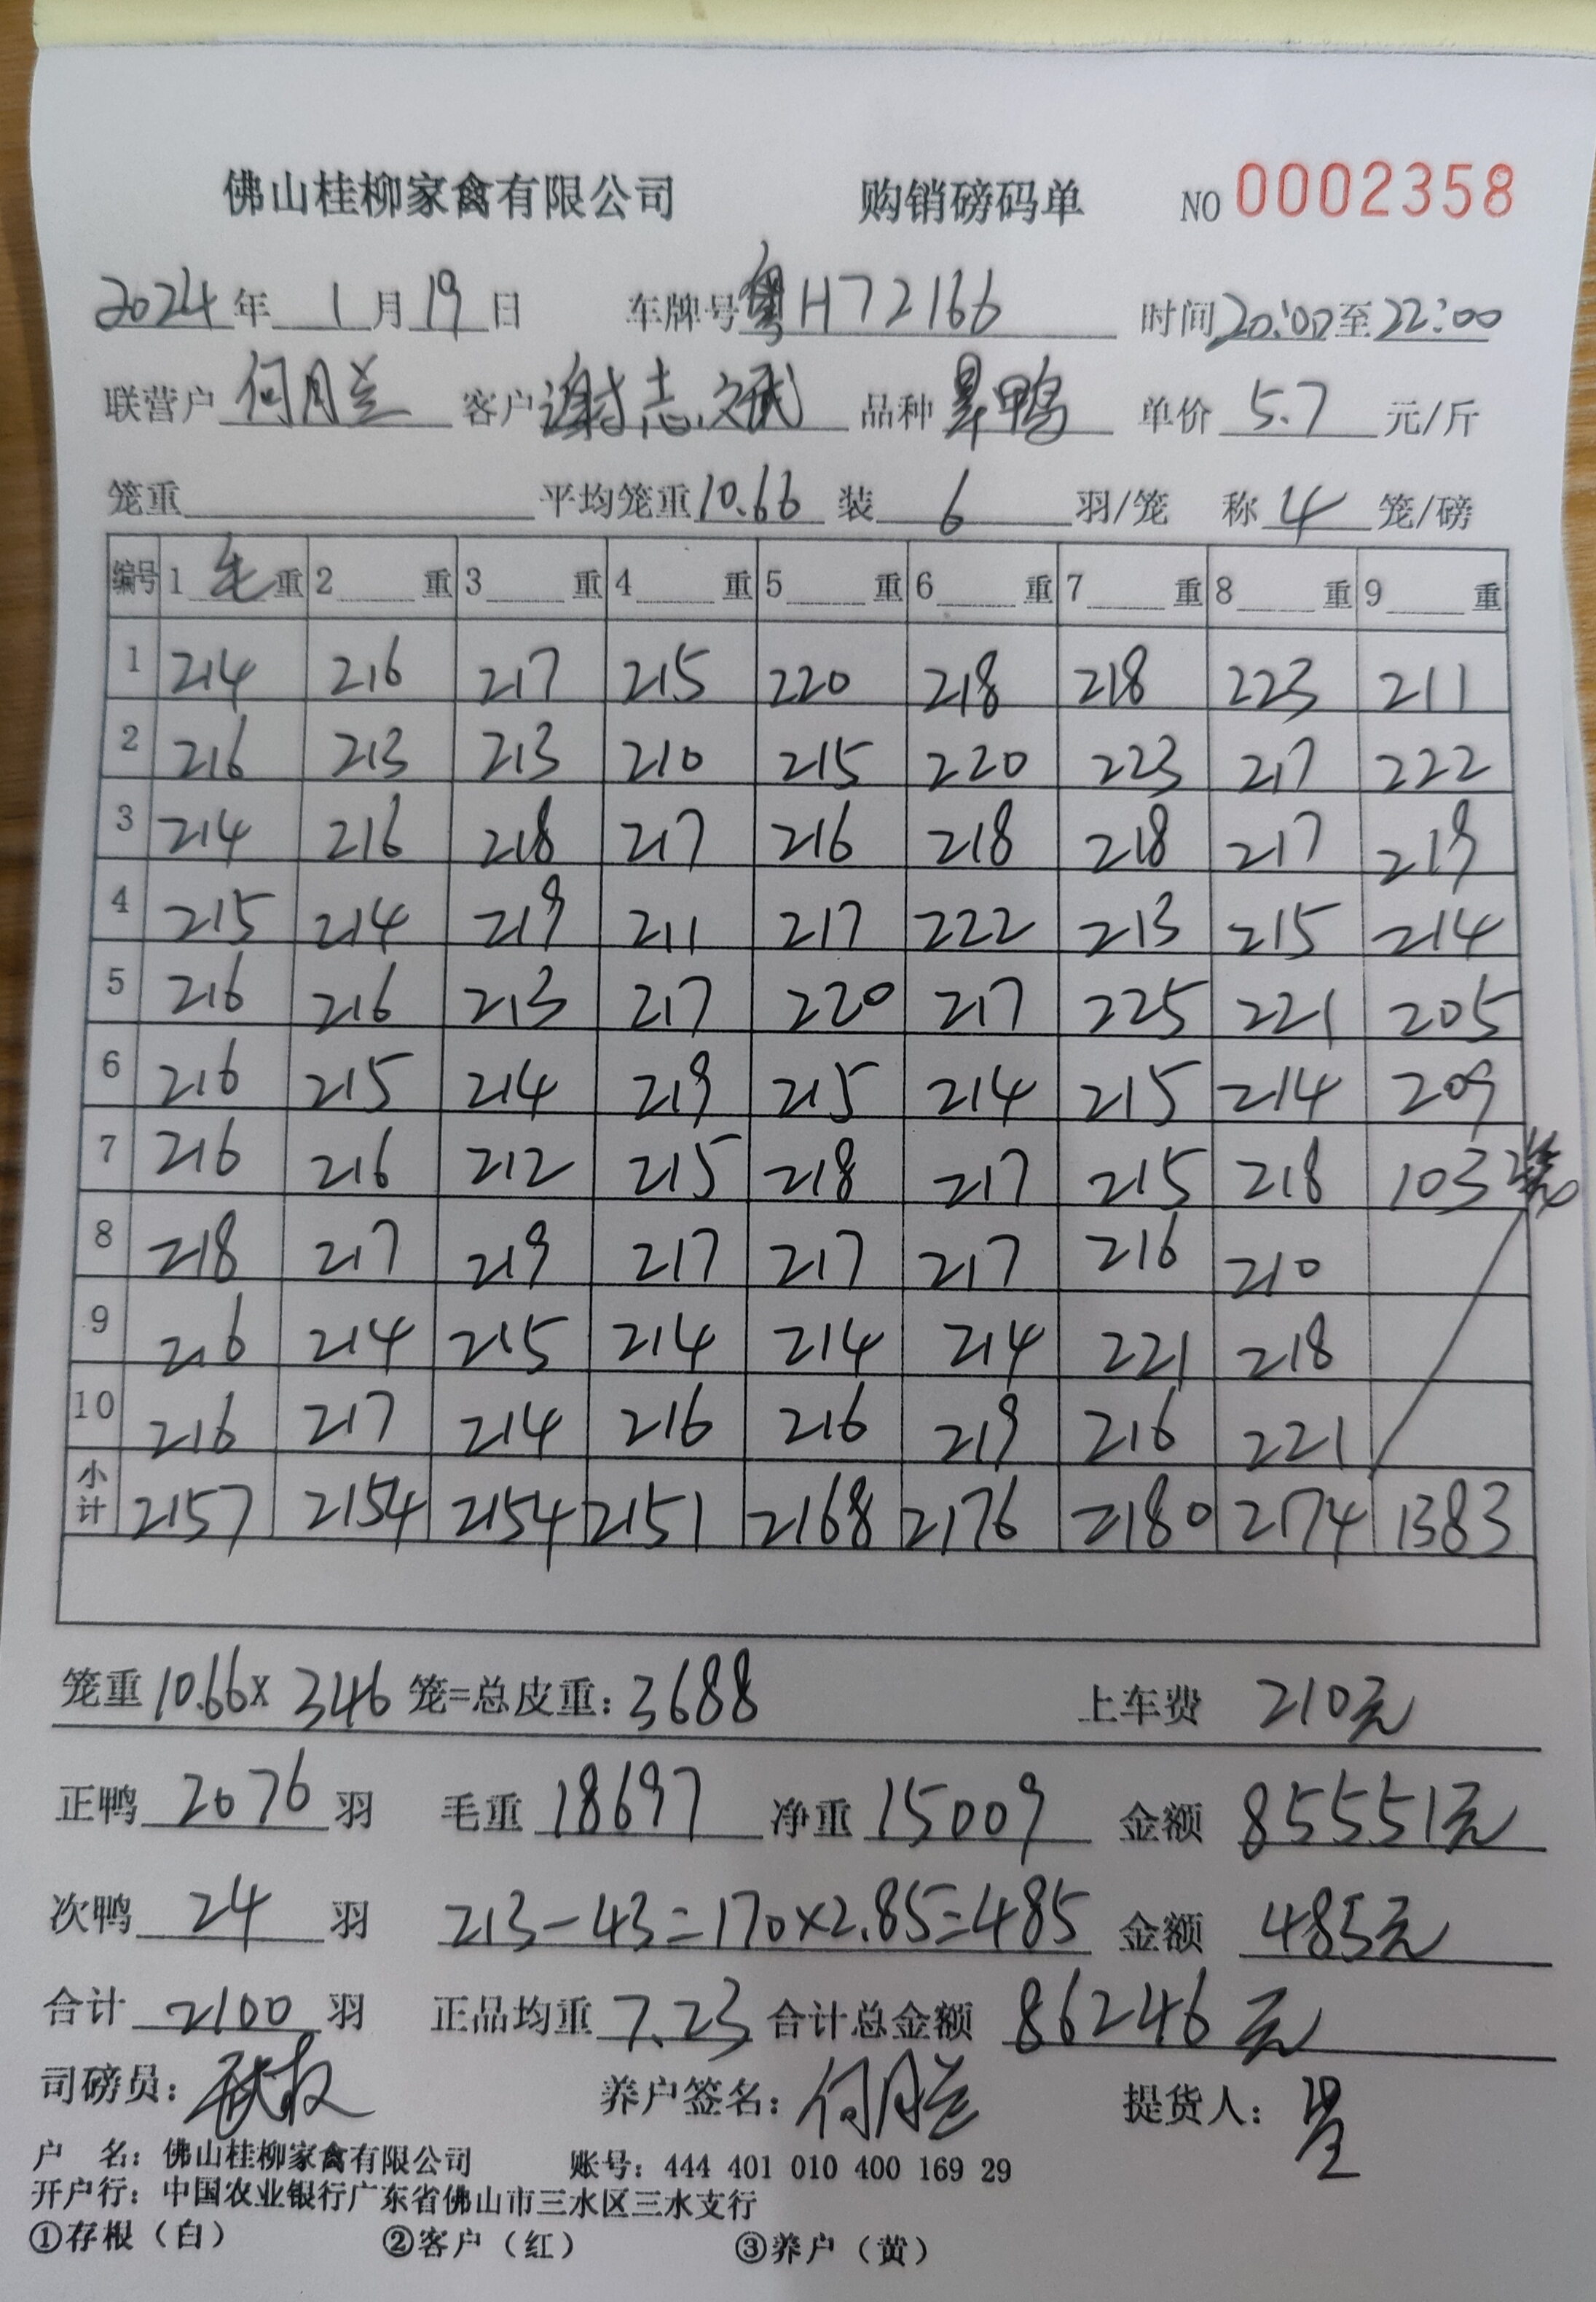 佛山桂柳家禽有限公司 购销磅码单 NO 0002358
2024年 1月19日 车牌号 粤H72166 时间 20:00至22:00
联营户 何月兰 客户 谢志斌 品种 旱鸭 单价 5.7 元/斤
笼重 平均笼重 10.66 装 6 羽/笼 称 4 笼/磅
编号 1 毛 重 2 重 3 重 4 重 5 重 6 重 7 重 8 重 9 重
1 214 216 217 215 220 218 218 223 211
2 216 213 213 210 215 220 223 217 222
3 214 216 218 217 216 218 218 217 219
4 215 214 219 211 217 222 213 215 214
5 216 216 213 217 220 217 225 221 205
6 216 215 214 219 215 214 215 214 209
7 216 216 212 215 218 217 215 218 103 2笼
8 218 217 219 217 217 217 216 210
9 216 214 215 214 214 214 221 218
10 216 217 214 216 216 219 216 221
小计 2157 2154 2154 2151 2168 2176 2180 2174 1383
笼重 10.66× 346 笼=总皮重：3688 上车费 210元
正鸭 2076 羽 毛重 18697 净重 15009 金额 85551元
次鸭 24 羽 213-43=170×2.85=485 金额 485元
合计 2100 羽 正品均重 7.23 合计总金额 86246元
司磅员： 养户签名：何月兰 提货人：
户 名：佛山桂柳家禽有限公司 账号：444 401 010 400 169 29
开户行：中国农业银行广东省佛山市三水区三水支行
①存根（白） ②客户（红） ③养户（黄）